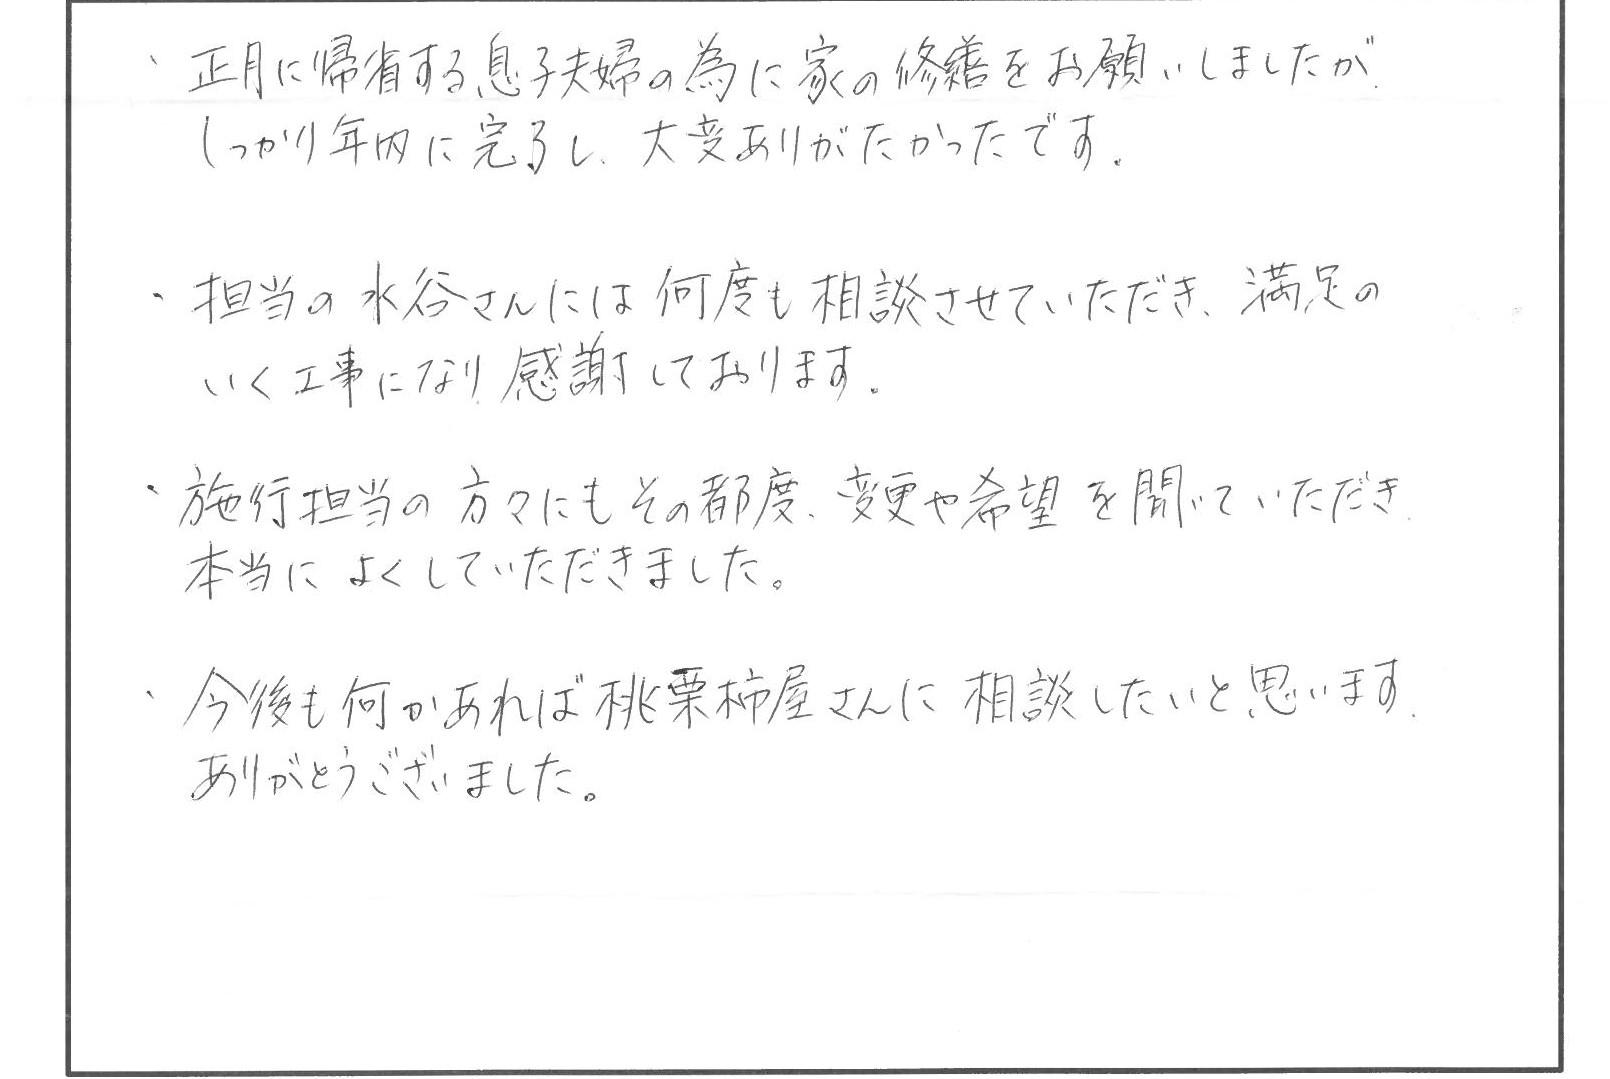 ・正月に帰省する息子夫婦の為に家の修繕をお願いしましたが、
しっかり年内に完了し、大変ありがたかったです。
・担当の水谷さんには何度も相談させていただき、満足の
いく工事になり、感謝しております。
・施行担当の方々にもその都度、変更や希望を聞いていただき、
本当によくしていただきました。
・今後も何かあれば桃栗柿屋さんに相談したいと思います。
ありがとうございました。